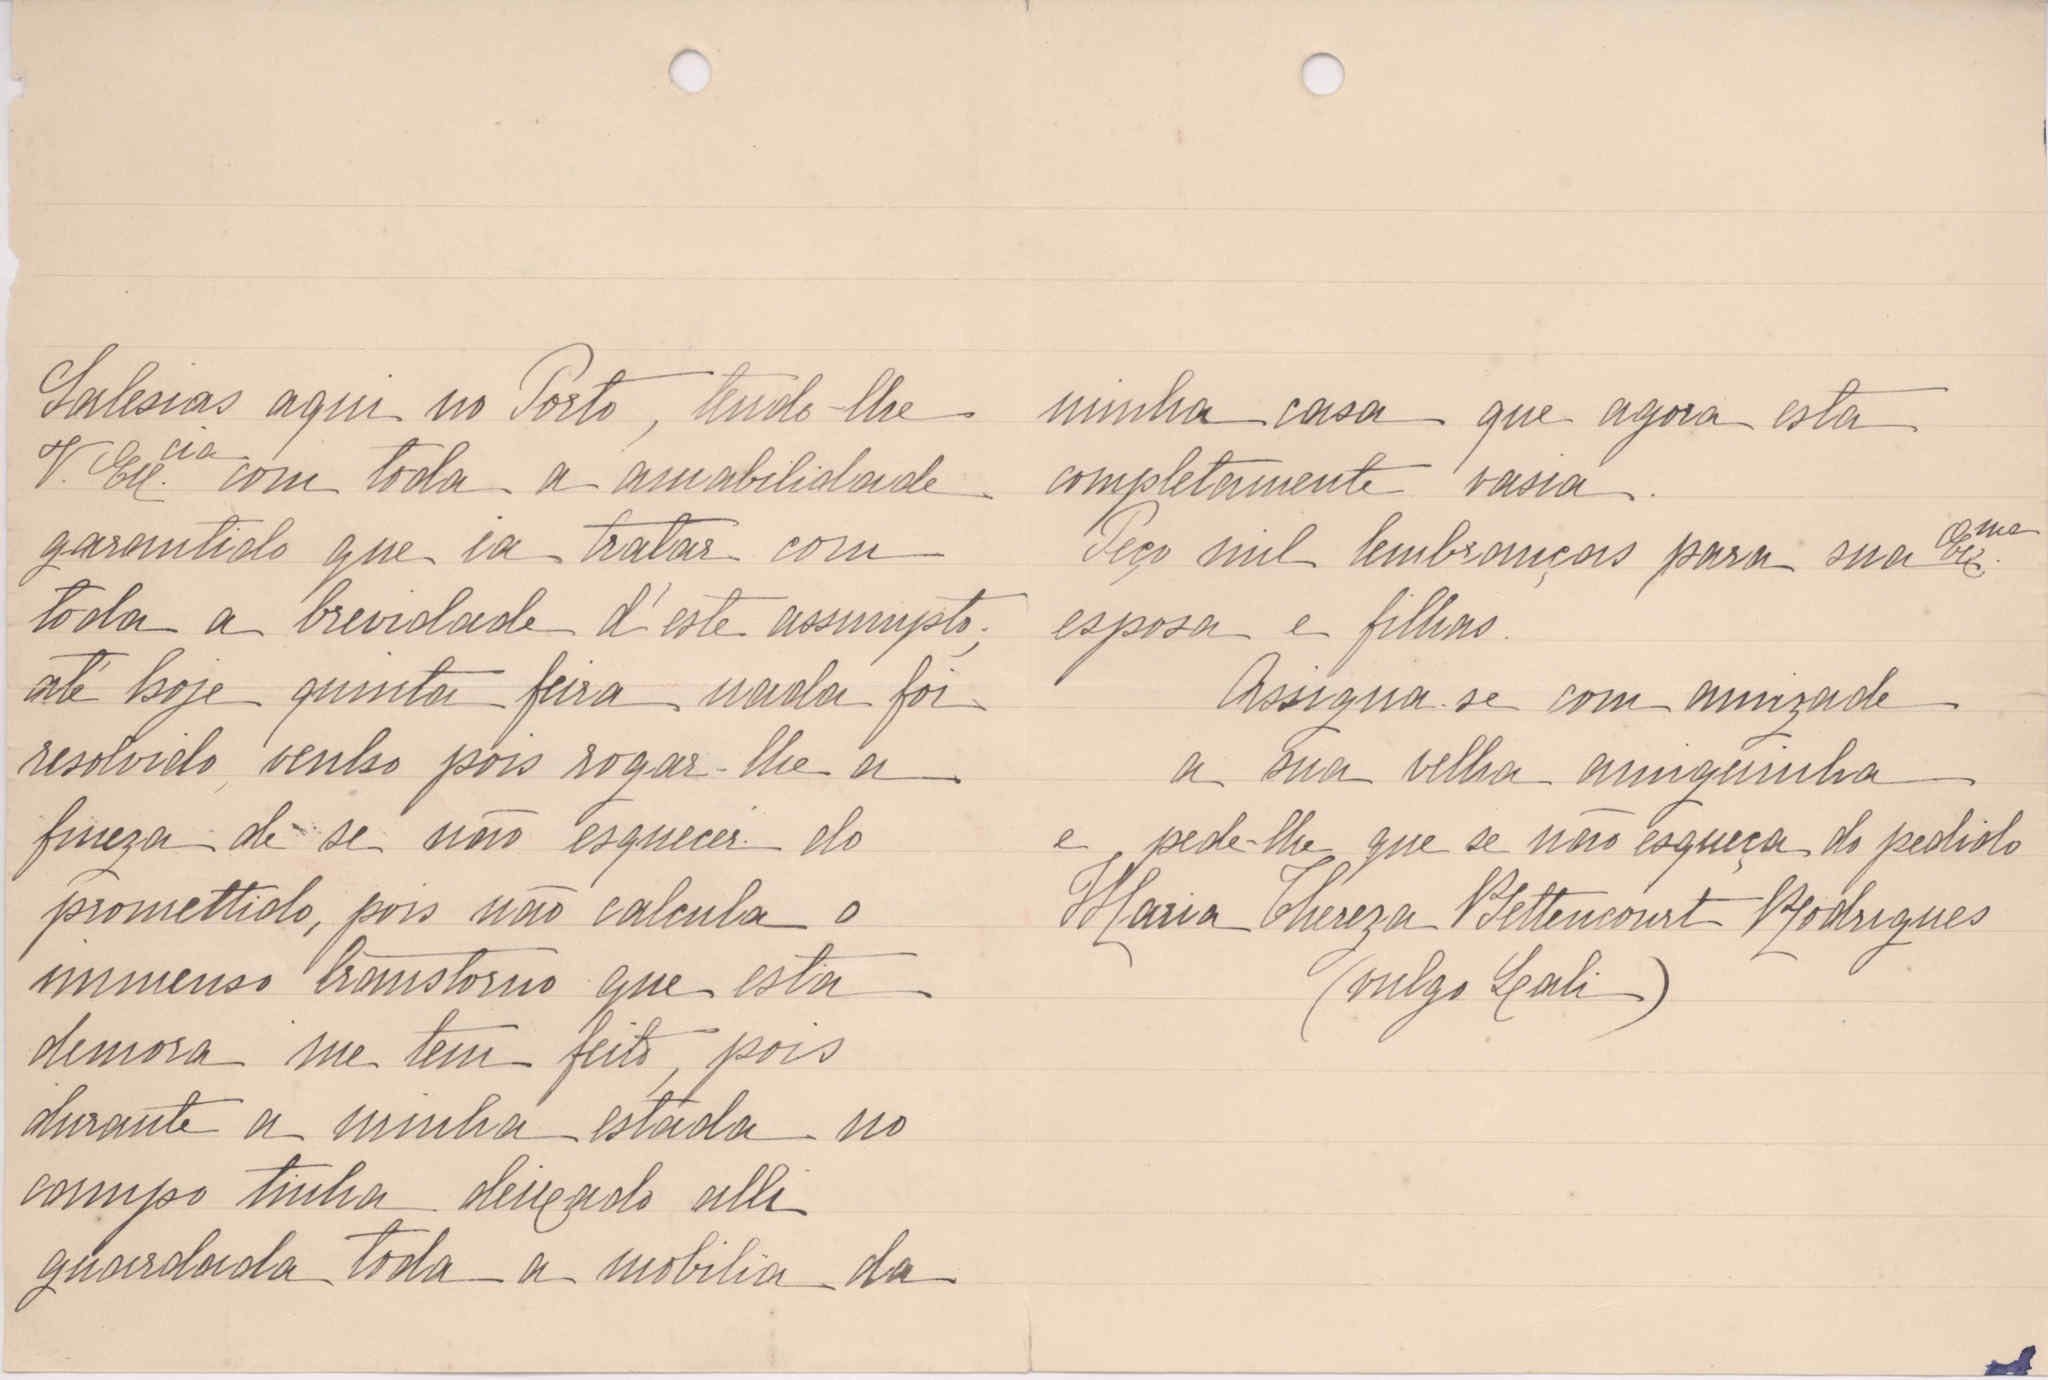 Salesias aqui no Porto, tendo-lhe
V. Ex.cia com toda a amabilidade
garantido que ia tratar com
toda a brevidade d'este assumpto;
até hoje quinta feira nada foi
resolvido, venho pois rogar-lhe a
fineza de se não esquecer do
promettido, pois não calcula o
immenso transtorno que esta
demora me tem feito, pois
durante a minha estada no
campo tinha deixado alli
guardada toda a mobilia da
minha casa que agora esta
completamente vasia.
Peço mil lembranças para sua Ex.ma
esposa e filhas.
Assigna-se com amizade
a sua velha amiguinha
e pede-lhe que se não esqueça do pedido
Maria Thereza Bettencourt Rodrigues
(vulgo Lali)